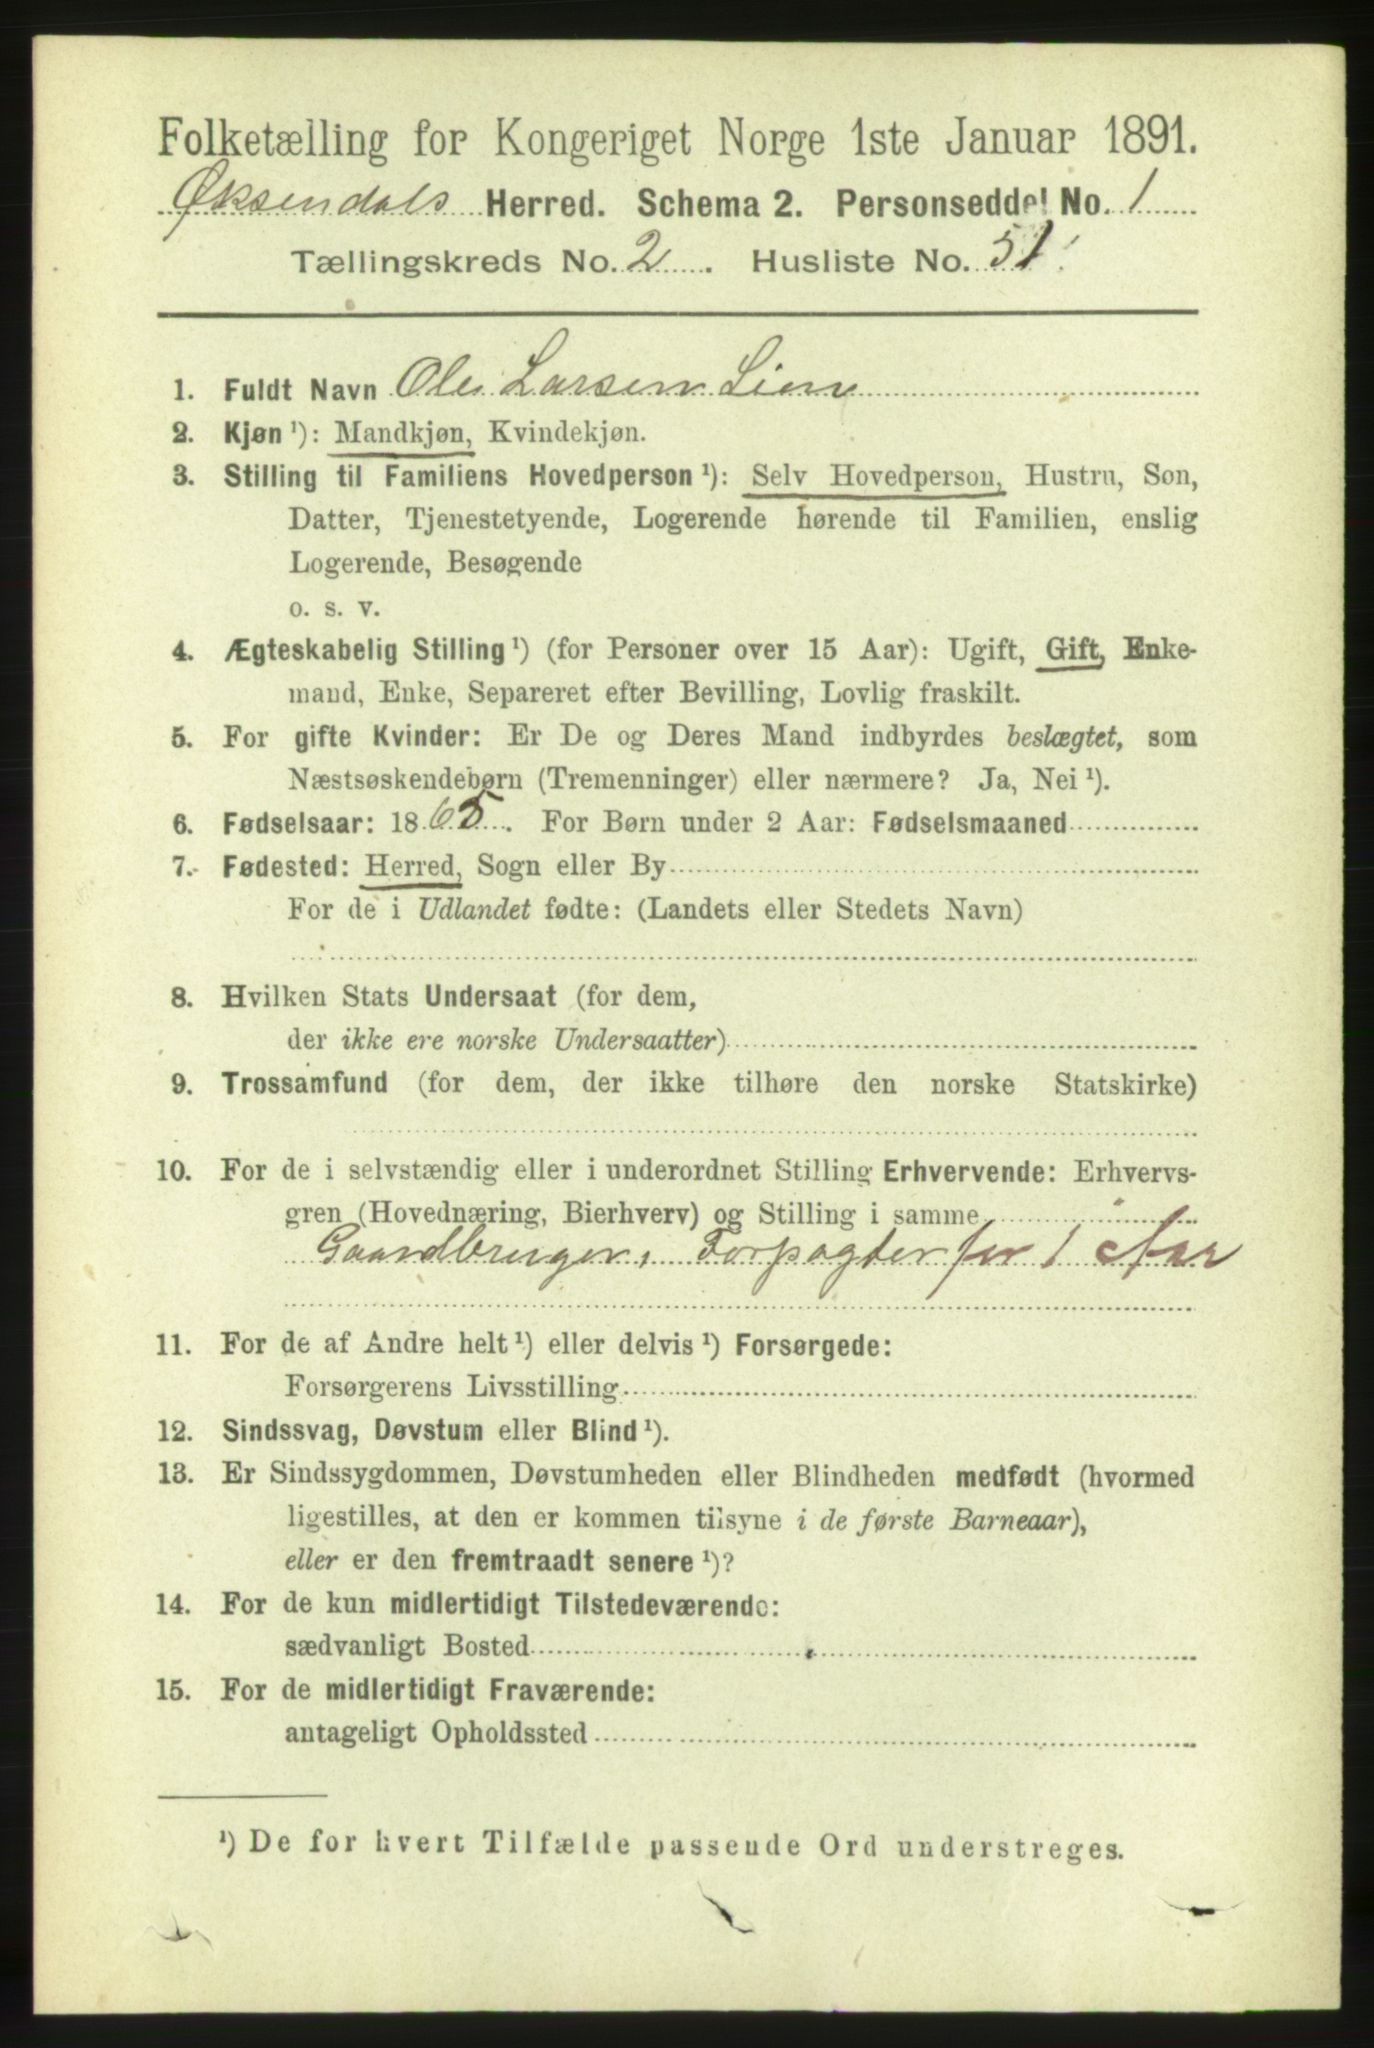 Folketælling for Kongeriget Norge 1ste Januar 1891.
Øksendals Herred. Schema 2. Personseddel No. 1
Tællingskreds No. 2. Husliste No. 51.
1. Fuldt Navn Ole Larsen Lien
2. Kjøn ¹): Mandkjøn, Kvindekjøn.
3. Stilling til Familiens Hovedperson ¹): Selv Hovedperson, Hustru, Søn,
Datter, Tjenestetyende, Logerende hørende til Familien, enslig
Logerende, Besøgende
o. s. v.
4. Ægteskabelig Stilling ¹) (for Personer over 15 Aar): Ugift, Gift, Enke-
mand, Enke, Separeret efter Bevilling, Lovlig fraskilt.
5. For gifte Kvinder: Er De og Deres Mand indbyrdes beslægtet, som
Næstsøskendebørn (Tremenninger) eller nærmere? Ja, Nei ¹).
6. Fødselsaar: 1865. For Børn under 2 Aar: Fødselsmaaned
7. Fødested: Herred, Sogn eller By
For de i Udlandet fødte: (Landets eller Stedets Navn)
8. Hvilken Stats Undersaat (for dem,
der ikke ere norske Undersaatter)
9. Trossamfund (for dem, der ikke tilhøre den norske Statskirke)
10. For de i selvstændig eller i underordnet Stilling Erhvervende: Erhvervs-
gren (Hovednæring, Bierhverv) og Stilling i samme
Gaardbruger, Forpagter for 1 Aar
11. For de af Andre helt ¹) eller delvis ¹) Forsørgede:
Forsørgerens Livsstilling
12. Sindssvag, Døvstum eller Blind ¹).
13. Er Sindssygdommen, Døvstumheden eller Blindheden medfødt (hvormed
ligestilles, at den er kommen tilsyne i de første Barneaar),
eller er den fremtraadt senere ¹)?
14. For de kun midlertidigt Tilstedeværende:
sædvanligt Bosted
15. For de midlertidigt Fraværende:
antageligt Opholdssted
¹) De for hvert Tilfælde passende Ord understreges.